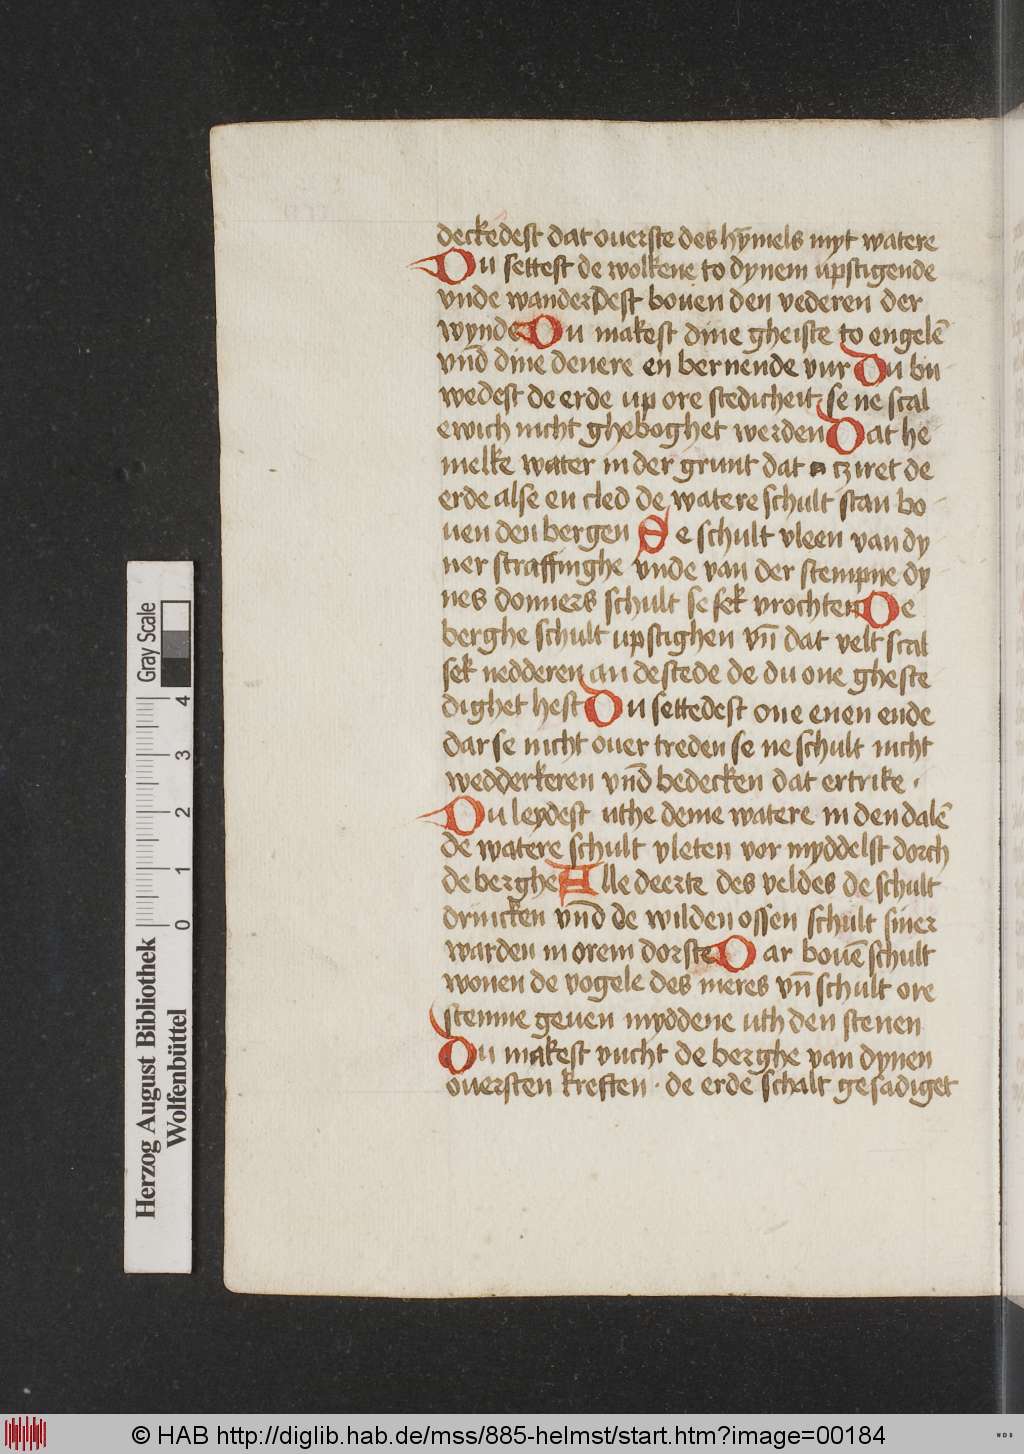 deckedest dat ouerste des hȳmels myt watere
Du settest de wolkene to dynem upstigende
vnde wanderdest bouen den vederen der
wynde Du makest dine gheiste to engelē
vnd̄ dine denere en bernende vur Du bu
wedest de erde up ore stedicheit se ne scal
ewich nicht gheboghet werden Dat he
melke water in der grunt dat tziret de
erde alse en cled de watere schult stan bo
uen den bergen Se schult vleen van dy
ner straffinghe vnde van der stempne dy
nes donners schult se sek vrochten De
berghe schult upstighen vn̄ dat velt scal
sek nedderen an de stede de du one gheste
dighet hest Du settedest one enen ende
dar se nicht ouer treden se ne schult nicht
wedderkeren vnd̄ bedecken dat ertrike ·
Du leydest uthe deme watere in den dalē
de watere schult vleten vor myddelst dorch
de berghe Alle deerte des veldes de schult
drincken vnd̄ de wilden ossen schult siner
warden in orem dorste Dar bouē schult
wonen de vogele des meres vn̄ schult ore
stemme geuen myddene uth den stenen
Du makest vucht de berghe van dynen
ouersten kreften · de erde schalt gesadiget
Gray Scale
4
3
2
1
0
Herzog August Bibliothek
Wolfenbüttel
© HAB http://diglib.hab.de/mss/885-helmst/start.htm?image=00184